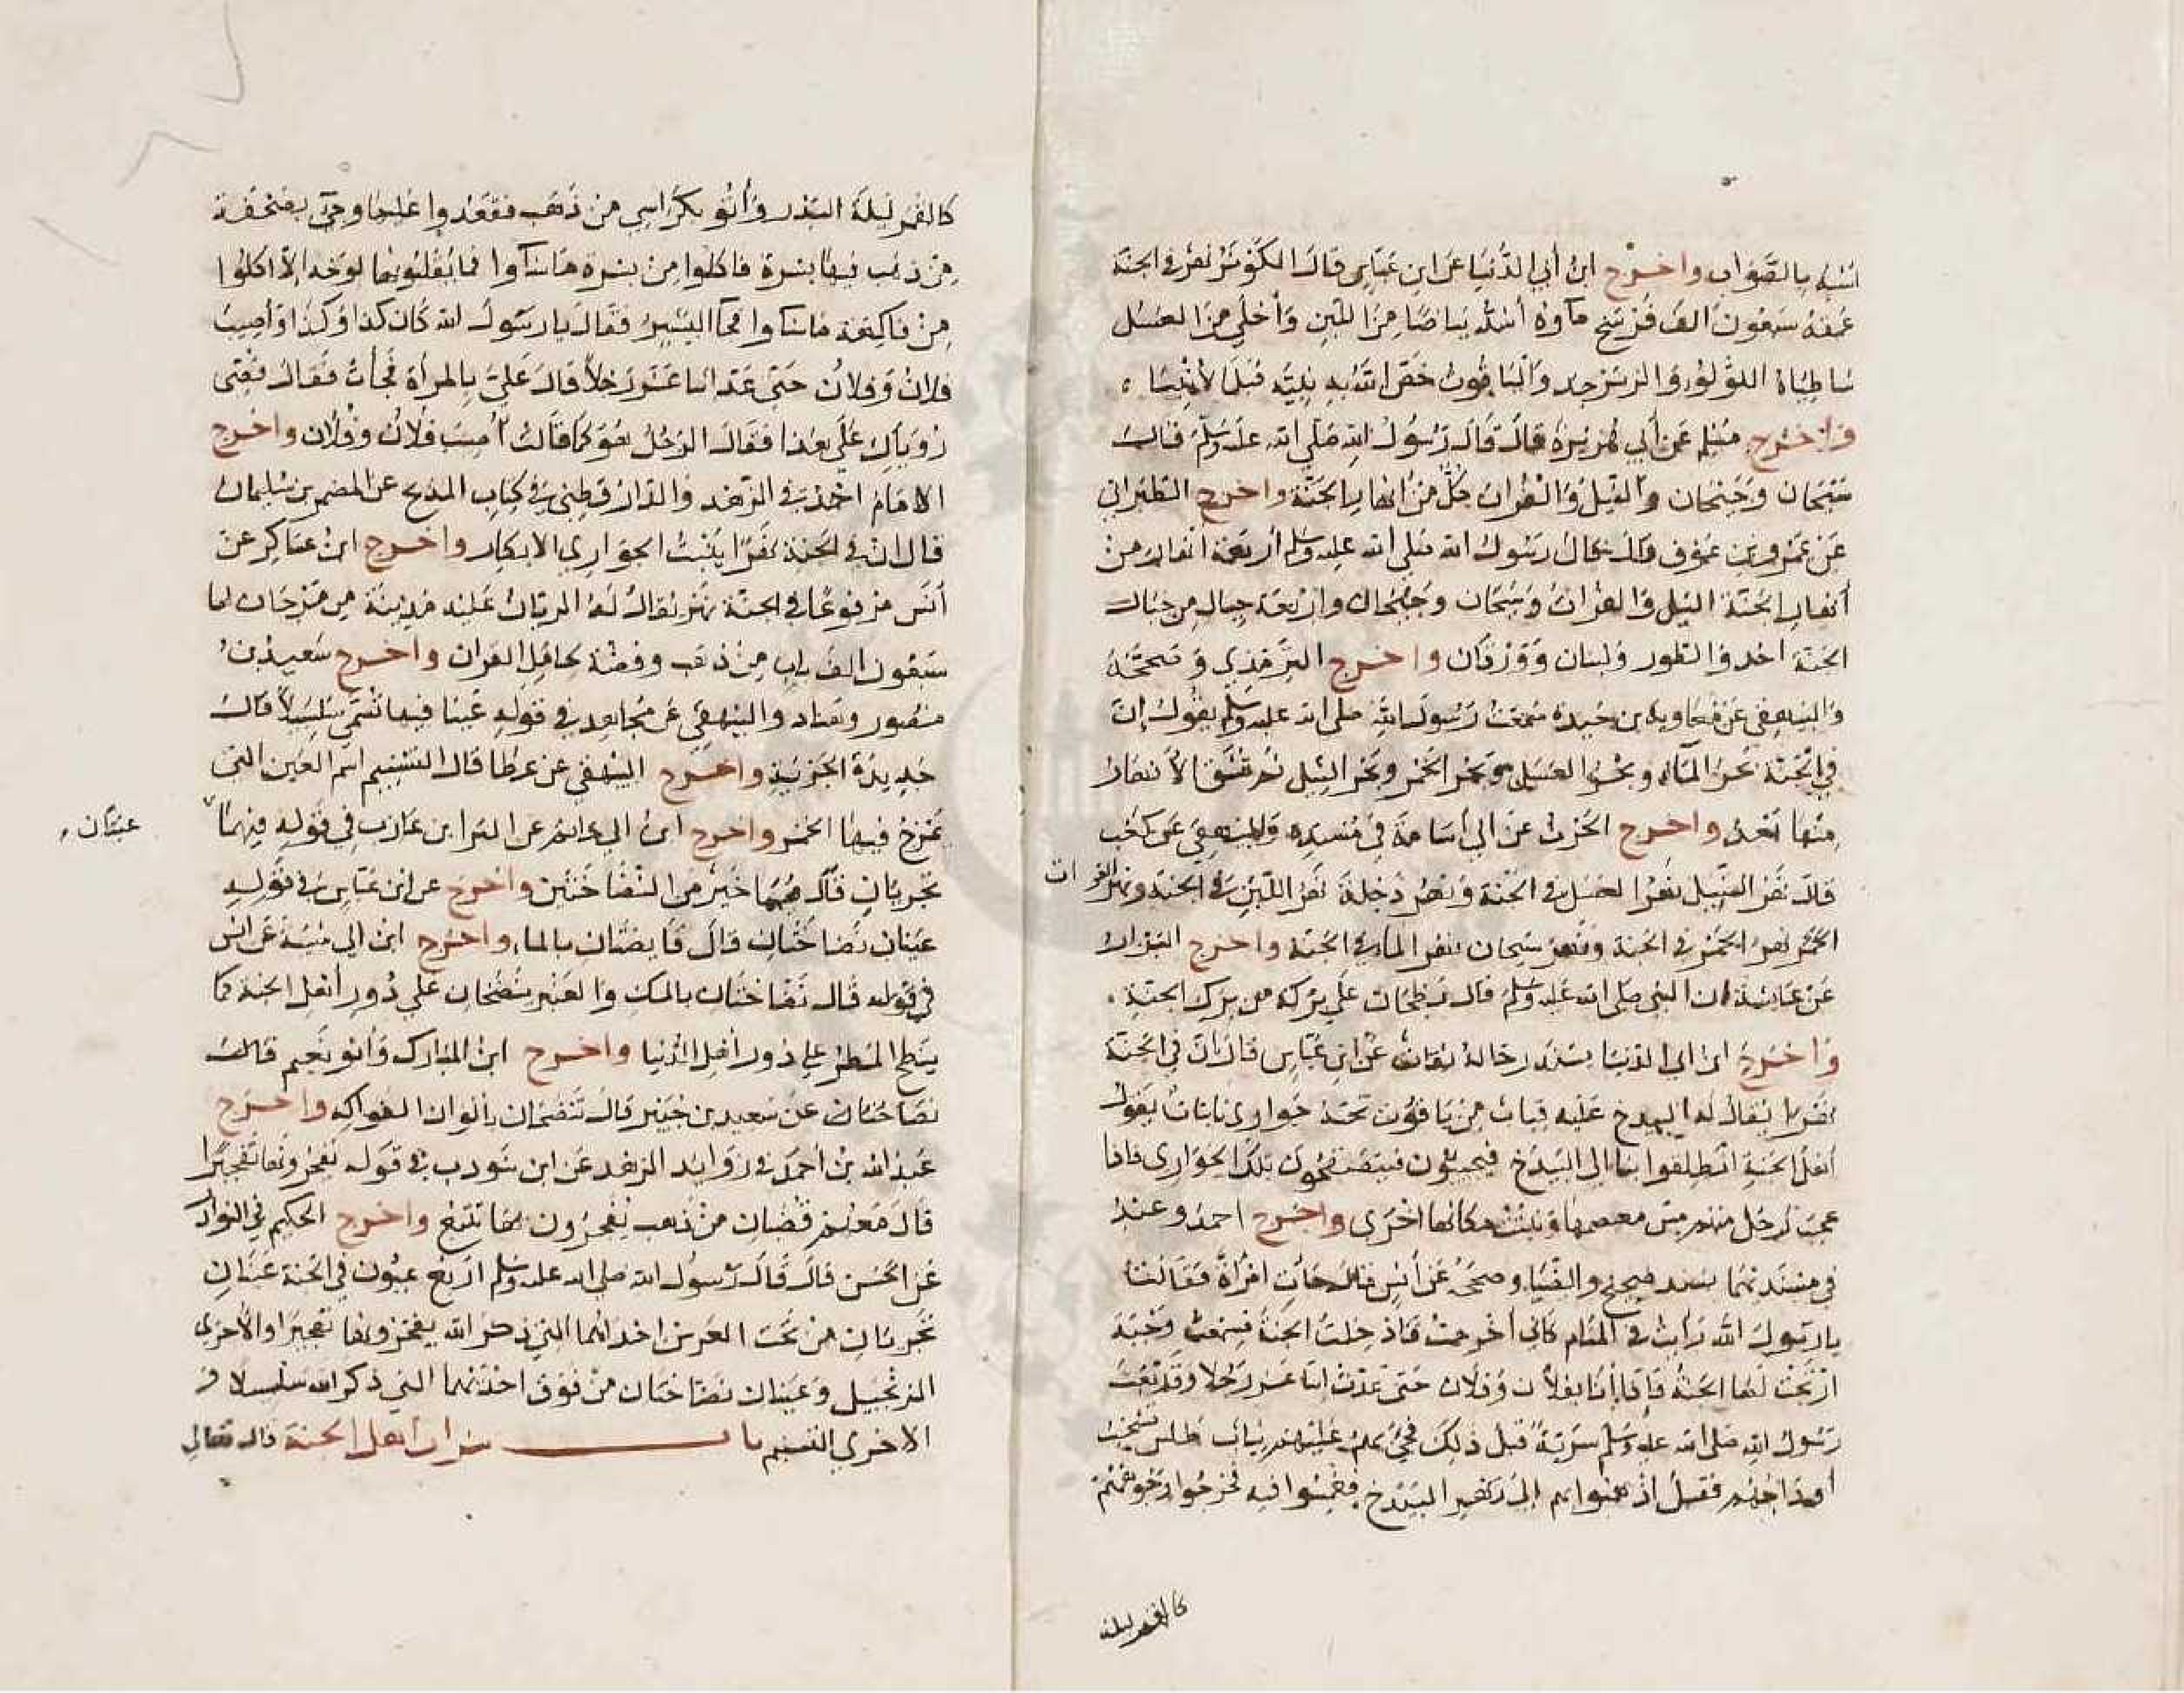 اشبه بالصواب واخرج ابن أبي الدنيا عن ابن عباس قال الكوثر نهر في الجنة
عمقه سبعون الف فرسخ ماؤه أشد بياضا من اللبن وأحلي من العسل
شاطياه اللؤلؤ والزبرجد والياقوت خص الله به نبيه قبل الأنبياء
واخرج مسلم عن أبي هريرة قال قال رسول الله صلي الله عليه وسلم قال
سيحان وجيحان والنيل والفرات كل من أنهار الجنة واخرج الطبراني
عن عمرو بن عوف قال قال رسول الله صلي الله عليه وسلم أربعة أنهار من
أنهار الجنة النيل والفرات وسيحان وجيحان واربعة جبال من جبال
الجنة احد والطور ولبنان وورقان واخرج الترمذي وصححه
والبيهقي عن معاوية بن حيدة سمعت رسول الله صلى الله عليه وسلم يقول إن
في الجنة بحر الماء وبحر العسل وبحر الخمر وبحر اللبن ثم تشقق الأنهار
منها بعد واخرج الحرث عن ابي أسامة في مسنده والبيهقي عن كعب
قال نهر النيل نهر العسل في الجنة ونهر دجلة نهر اللبن في الجنة ونهر الفرات
الخمر نهر الخمر في الجنة ونهر سيحان نهر الماء في الجنة واخرج البزار
عن عائشة ان النبي صلى الله عليه وسلم قال بطحان علي بركة من برك الجنة
واخرج ابن ابي الدنيا بسند رجاله ثقات عن ابن عباس قال ان في الجنة
نهرا يقال له البيدخ عليه قباب من ياقوت تحته جواري نابتات يقول
أهل الجنة انطلقوا بنا إلى البيدخ فيجيئون فيتصفحون تلك الجواري فاذا
عجب لرجل منهم مس معصمها ونبتت مكانها اخرى واخرج احمد وعبد
في مسنديهما بسند صحيح والضيا وصححه عن أنس قال جات امرأة فقالت
يا رسول الله رأيت في المنام كأني أخرجت فادخلت الجنة فسمعت وجبة
ارتجت لها الجنة فإذا أنا بفلان وفلان حتى عدت اثنا عشر رجلا وقد بعث
رسول الله صلى الله عليه وسلم سرية قبل ذلك فجئ بهم عليهم ثياب طلس تشخب
أوداجهم فقيل اذهبوا بهم إلى نهر البيدخ فغمسوا فيه فخرجوا وجوههم
كالقمر ليلة
كالقمر ليلة البدر وأتوا بكراسي من ذهب فقعدوا عليها وجئ بصحفة
من ذهب فيها بسرة فاكلوا من بسره ما شاؤا فما يقلبونها لوجه إلا اكلوا
من فاكهة ما شاؤا فجا البشير فقال يا رسول الله كان كذا وكذا وأصيب
فلان وفلان حتى عد اثنا عشر رجلا قال علي بالمرأة فجأت فقال قصي
رؤياك علي هذا فقال الرجل هو كما قالت أصيب فلان وفلان واخرج
الامام احمد في الزهد والدارقطني في كتاب المدبج عن المعتمر بن سليمان
قال ان في الجنة نهرا ينبت الجواري الابكار واخرج ابن عساكر عن
أنس مرفوعا في الجنة نهر يقال له الريان عليه مدينة من مرجان لها
سبعون الف باب من ذهب وفضة لحامل القران واخرج سعيد بن
منصور وهناد والبيهقي عن مجاهد في قوله عينا فيها تسمى سلسبيلا قال
حديدة الجرية واخرج البيهقي عن عطا قال التسنيم اسم العين التي
تمزج فيها الخمر واخرج ابن ابي حاتم عن البرا ابن عازب في قوله فيهما
عينان
تجريان قال هما خير من النضاختين واخرج عن ابن عباس في قوله
عينان نضاختان قال فايضتان بالماء واخرج ابن ابي شيبة عن انس
في قوله قال نضاختان بالمسك والعنبر ينضخان علي دور أهل الجنة كما
ينضح المطر علي دور أهل الدنيا واخرج ابن المبارك وأبو نعيم قال
نضاختان عن سعيد بن جبير قال تنضخان بألوان الفواكه واخرج
عبد الله بن احمد في زوايد الزهد عن ابن شودب في قوله يفجرونها تفجيرا
قال معهم قضبان من ذهب يفجرون بها تتبع واخرج الحكيم في النوادر
عن الحسن قال قال رسول الله صلى الله عليه وسلم اربع عيون في الجنة عينان
تجريان من تحت العرش احداهما التي ذكر الله يفجرونها تفجيرا والأخرى
الزنجبيل وعينان نضاختان من فوق احدهما التي ذكر الله سلسبيلا و
الاخري التسنيم باب شراب أهل الجنة قال تعالى